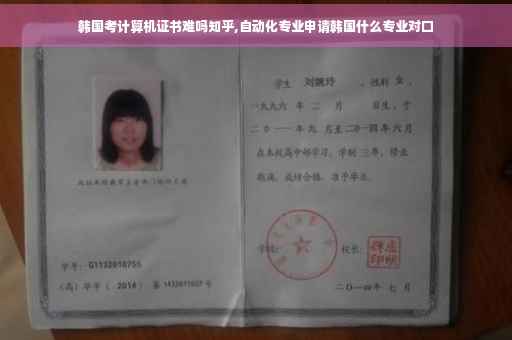 韩国考计算机证书难吗知乎,自动化专业申请韩国什么专业对口
学生 刘婉玲 ，性别 女 ，
一九九六 年 二 月 日生，于
二0一一年九 月至二0一四年六月
在本校高中部学习，学制 三年，修业
期满，成绩合格，准予毕业。
学校: 校长:
学号: G1132010755
(高) 毕字 ( 2014 ) 第 1432011027 号
二〇一四年 七 月